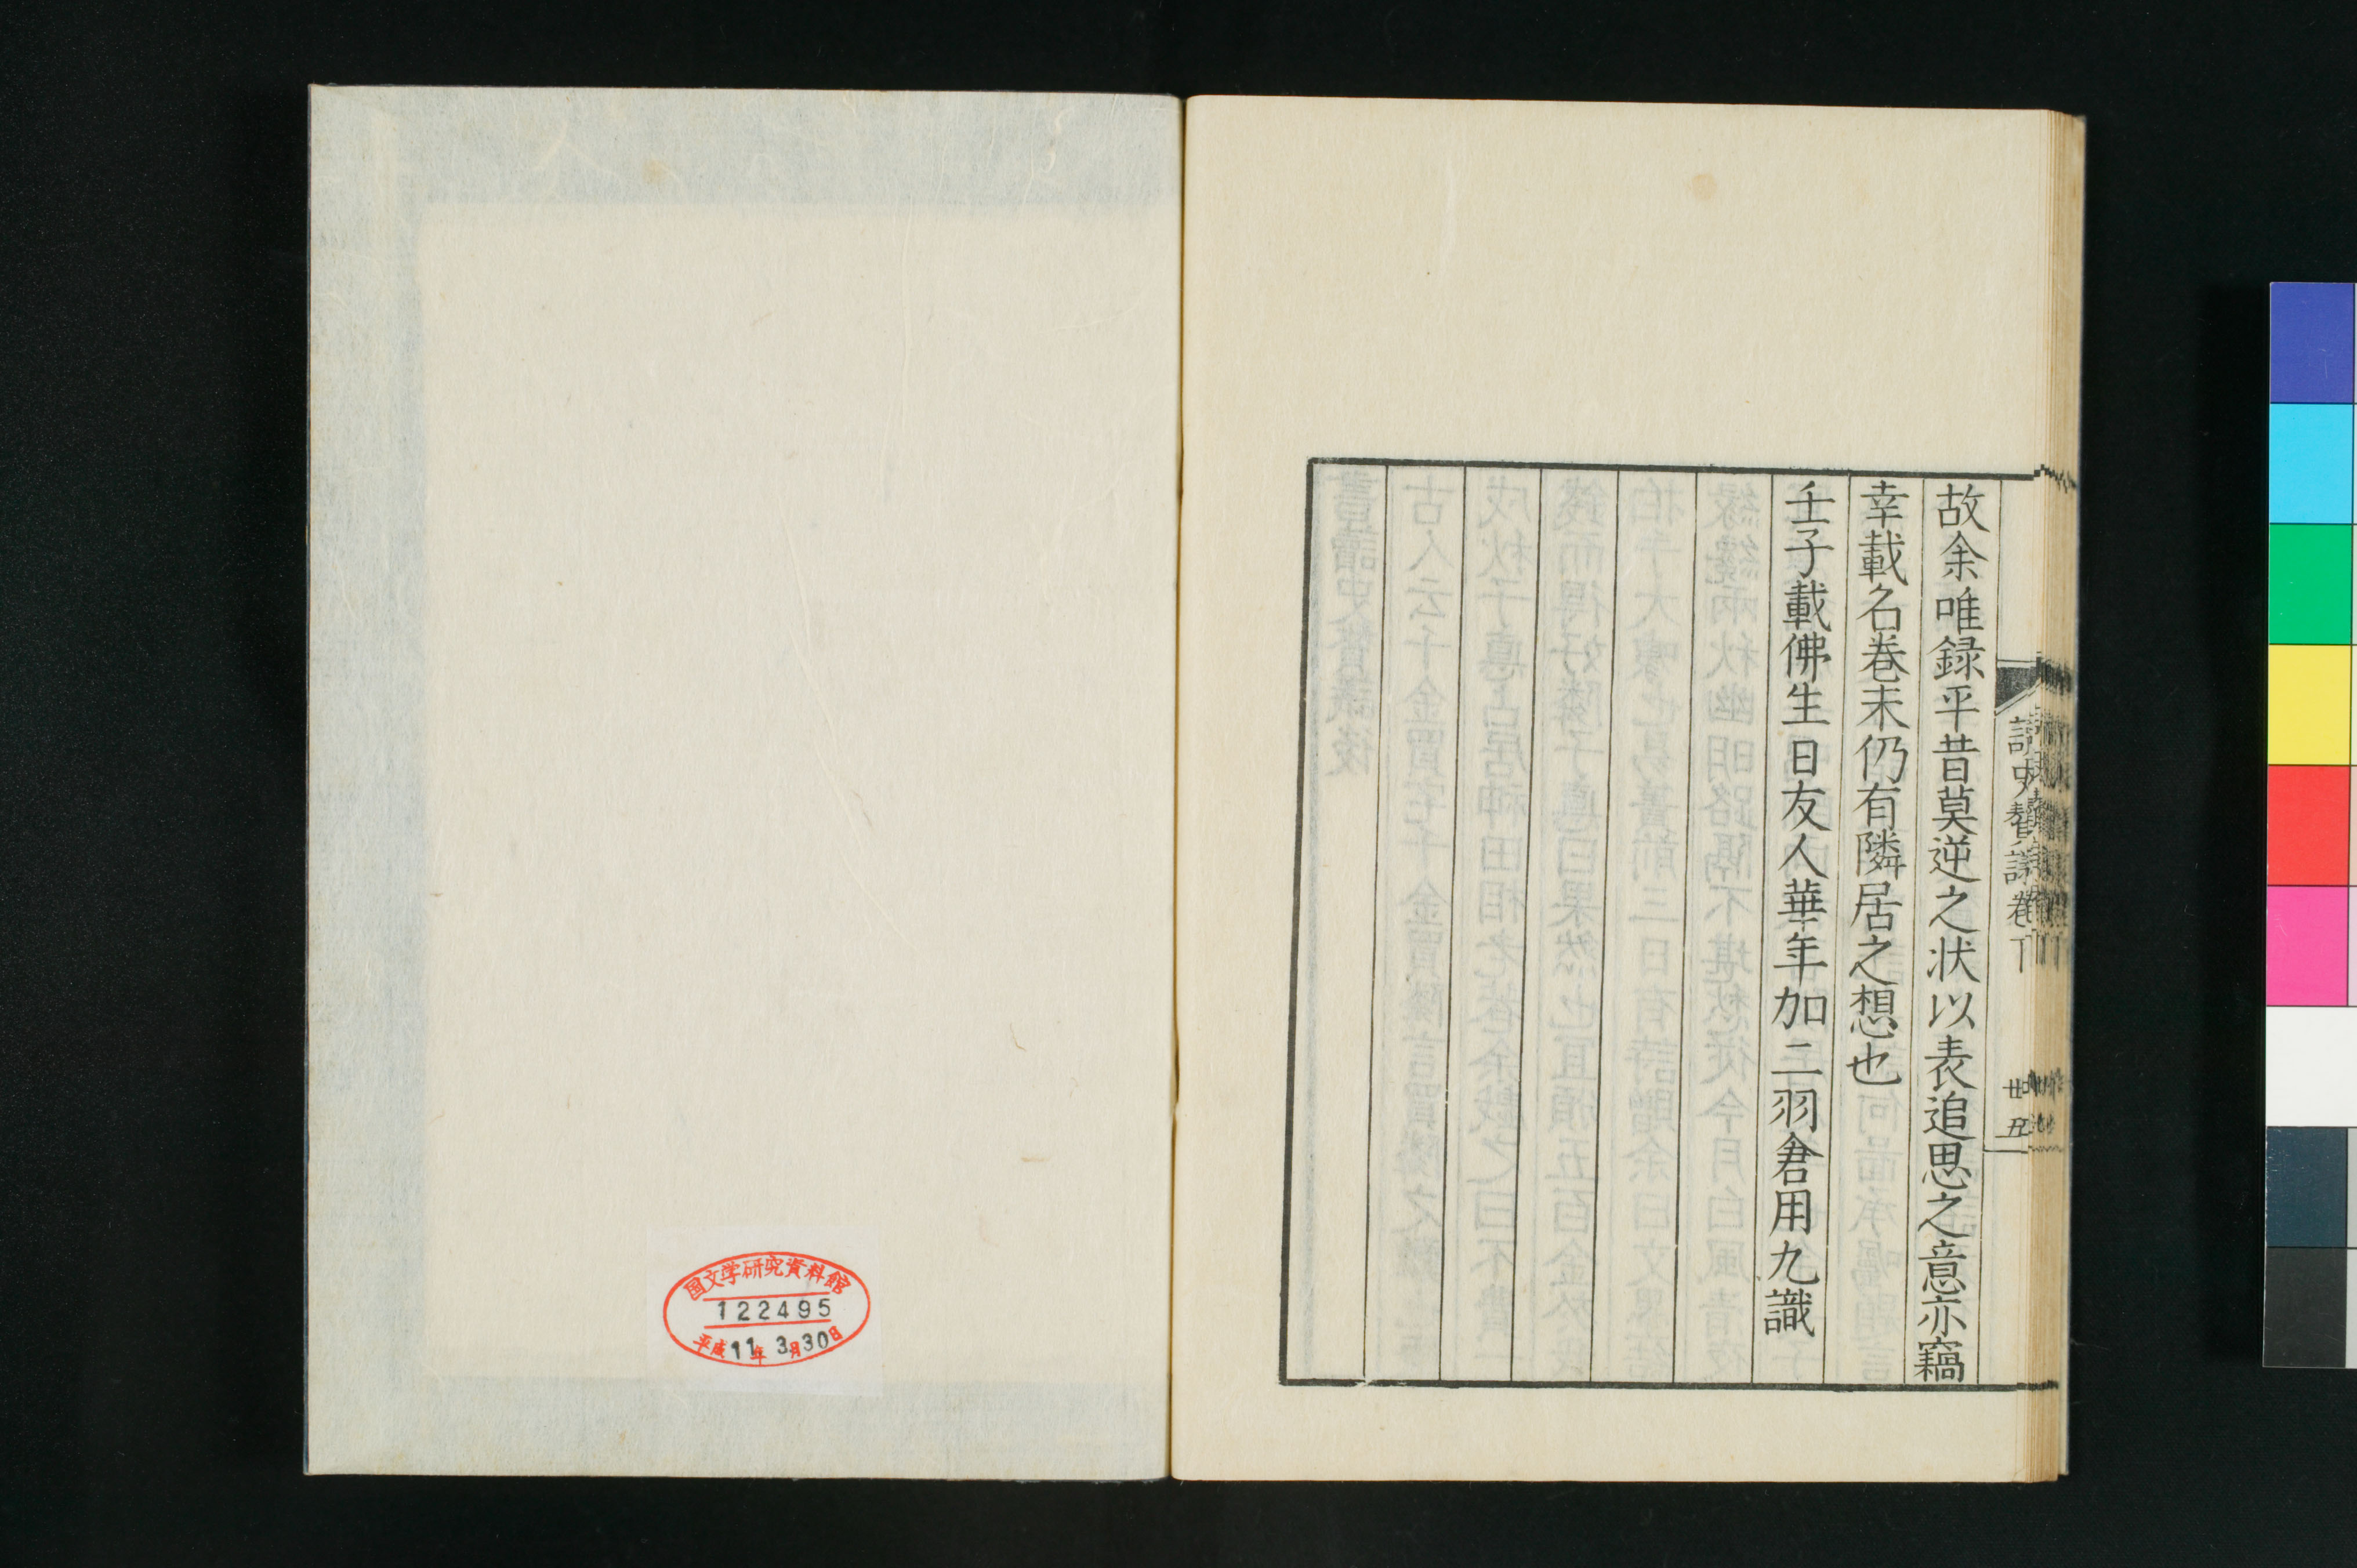 故余唯録平昔莫逆之状以表追思之意亦竊
幸載名巻末仍有隣居之想也
壬子載佛生日友人華年加二羽倉用九識
讀史贅議巻下
廿五
国文学研究資料館
122495
平成11年3月30日